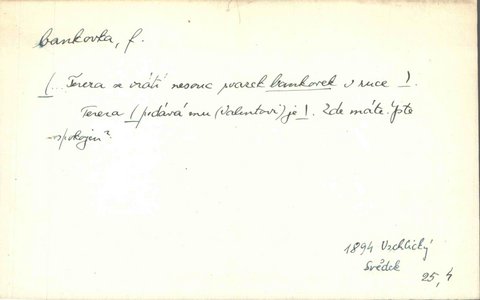 bankovka, f.
[... Tereza se vrátí nesouc svazek bankovek v ruce ].
Tereza [ podává mu (Valentovi) je ]. Zde máte. Jste
spokojen?
1894 Vrchlický
Svědek
25,4